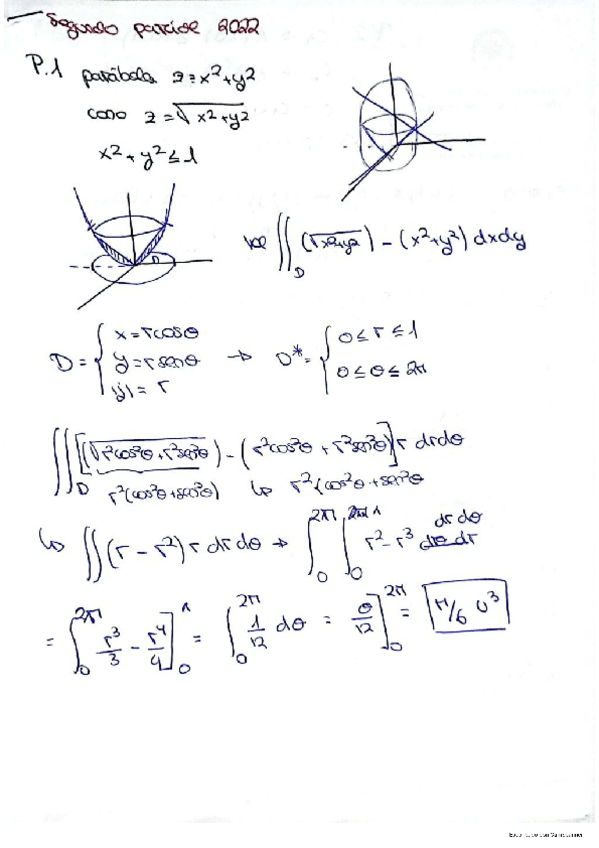 Segundo parcial 2022
P.1 parábola z = x²+y²
cono z = √x²+y²
x² + y² ≤ 1
D
Vol ∬_D (√x²+y²) − (x²+y²) dxdy
D = { x = rcosθ
y = rsenθ
|J| = r
→ D* = { 0 ≤ r ≤ 1
0 ≤ θ ≤ 2π
∭_D [(√r²cos²θ + r²sen²θ) − (r²cos²θ + r²sen²θ)] r drdθ
r²(cos²θ+sen²θ) ↳ r²(cos²θ +sen²θ
↳ ∬(r − r²) r dr dθ → ∫₀^2π ∫₀^1 r² − r³ dr dθ
= ∫₀^2π r³/3 − r⁴/4 ]₀^1 = ∫₀^2π 1/12 dθ = θ/12 ]₀^2π = π/6 U³